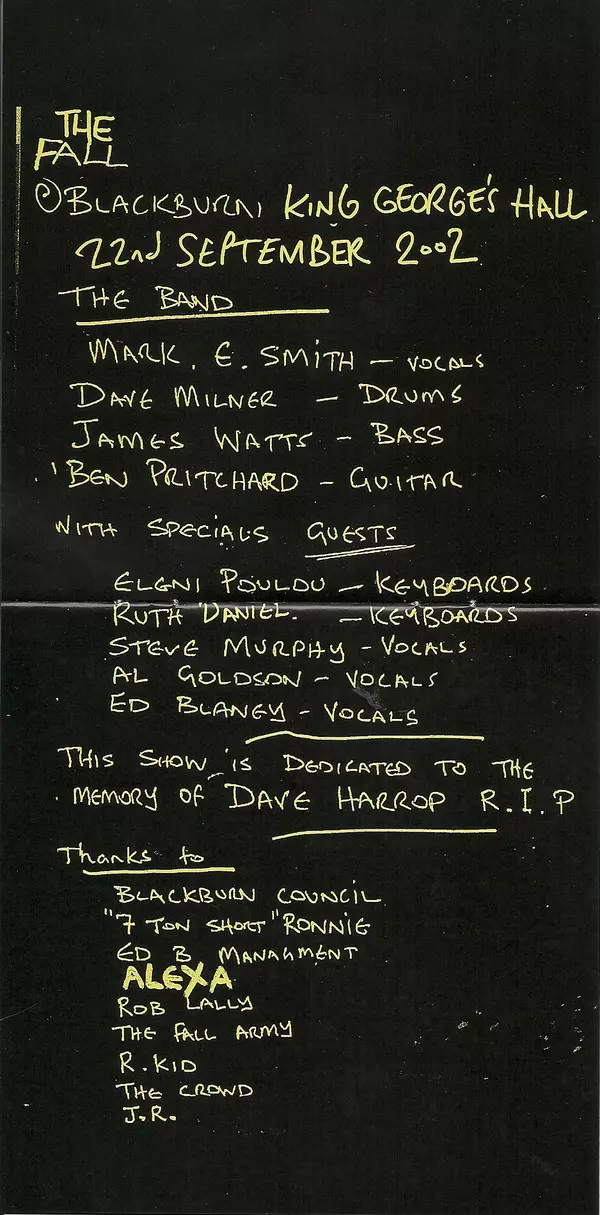 THE
FALL
@ BLACKBURN, KING GEORGE'S HALL
22nd SEPTEMBER 2002
THE BAND
MARK. E. SMITH – VOCALS
DAVE MILNER – DRUMS
JAMES WATTS – BASS
'BEN PRITCHARD – GUITAR
WITH SPECIALS GUESTS
ELENI POULOU – KEYBOARDS
RUTH DANIEL. – KEYBOARDS
STEVE MURPHY – VOCALS
AL GOLDSON – VOCALS
ED BLANEY – VOCALS
THIS SHOW IS DEDICATED TO THE
MEMORY OF DAVE HARROP R.I.P
Thanks to
BLACKBURN COUNCIL
"7 TON SHORT" RONNIE
ED B MANAGMENT
ALEXA
ROB LALLY
THE FALL ARMY
R. KID
THE CROWD
J.R.